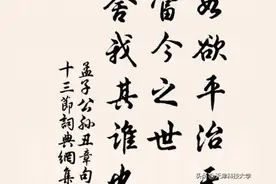 如欲平治天
當今之世
舍我其誰也
孟子公孫丑章句
十三節詞典網集
头条 @天津科技大学